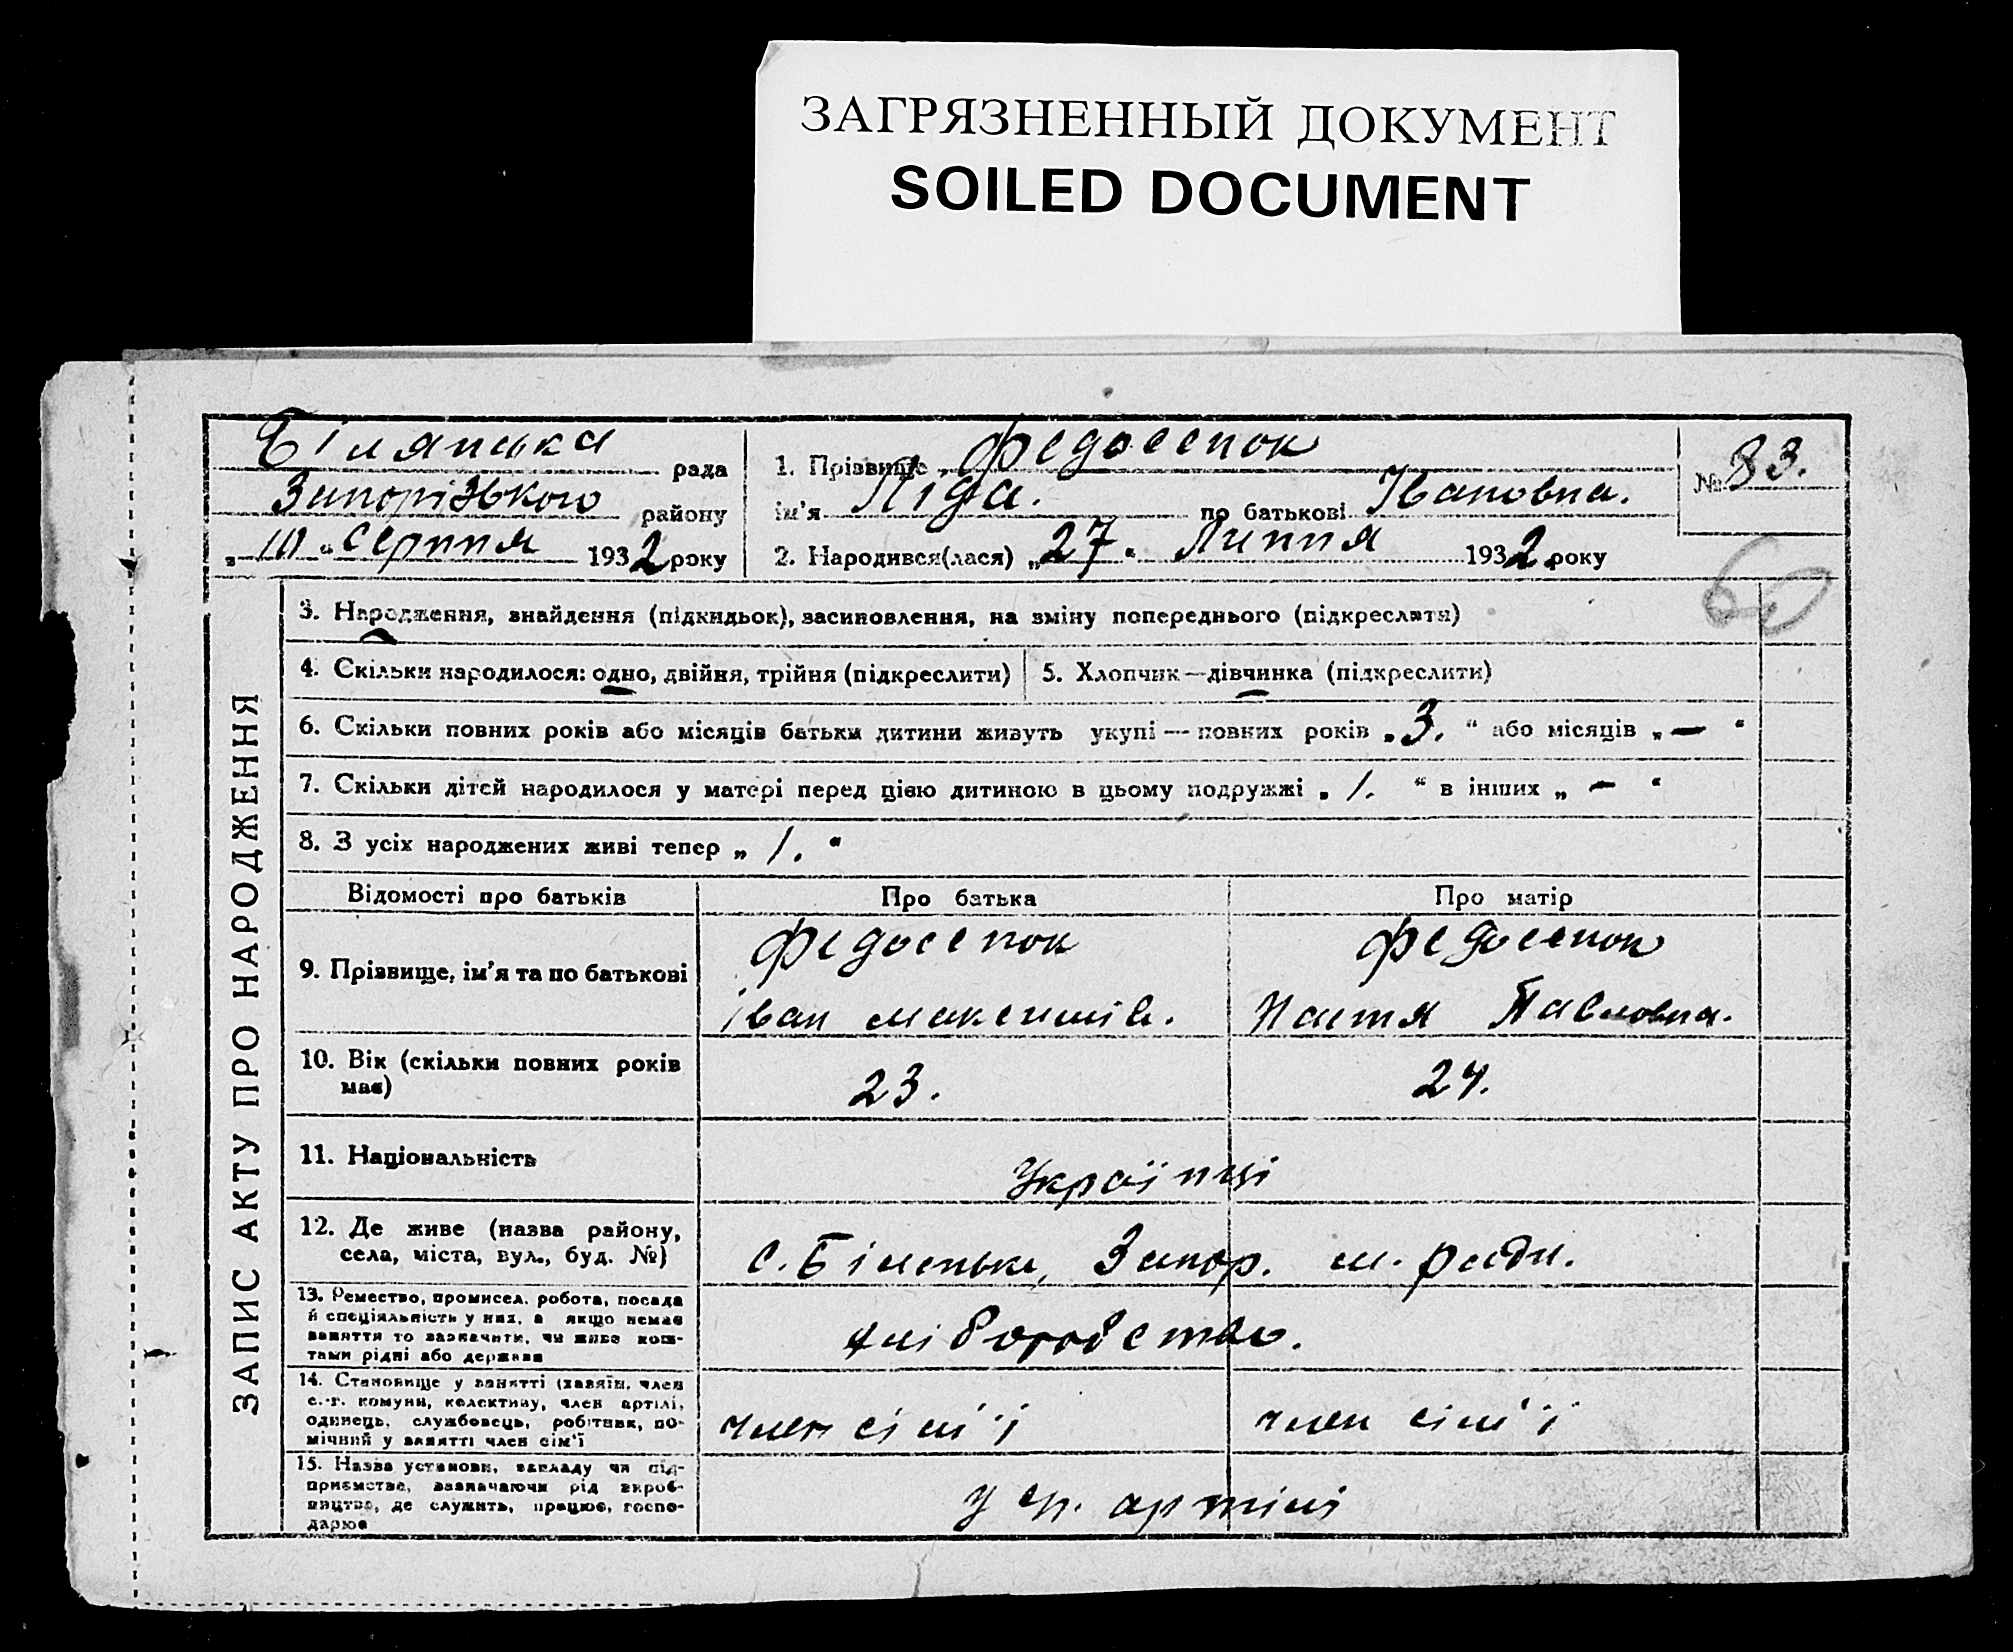 ЗАГРЯЗНЕННЫЙ ДОКУМЕНТ
SOILED DOCUMENT
Білянська рада
Запорізького району
„10“ серпня 1932 року
1. Прізвище Федосенок
ім'я Ліда. по батькові Івановна.
2. Народився(лася) „27“ Липня 1932 року
№ 83.
60
ЗАПИС АКТУ ПРО НАРОДЖЕННЯ
3. Народження, знайдення (підкидьок), засиновлення, на зміну попереднього (підкреслити)
4. Скільки народилося: одно, двійня, трійня (підкреслити)
5. Хлопчик—дівчинка (підкреслити)
6. Скільки повних років або місяців батьки дитини живуть укупі — повних років „3.“ або місяців „—“
7. Скільки дітей народилося у матері перед цією дитиною в цьому подружжі „1.“ в інших „—“
8. З усіх народжених живі тепер „1.“
Відомості про батьків
Про батька
Про матір
9. Прізвище, ім'я та по батькові
Федосенок
Іван максимів.
Федосенок
Настя Павловна.
10. Вік (скільки повних років
має)
23.
24.
11. Національність
Українці
12. Де живе (назва району,
села, міста, вул., буд. №)
с. Біленьке, Запор. м. ради.
13. Ремество, промисел, робота, посада
й спеціяльність у них, а якщо немає
заняття то зазначити, чи живе кош-
тами рідні або держави
хліборобство.
14. Становище у занятті (хазяїн, член
с.-г. комуни, колективу, член артілі,
одинець, службовець, робітник, по-
мічний у занятті член сім'ї
член сім'ї
член сім'ї
15. Назва установи, закладу чи під-
приємства, зазначаючи рід вироб-
ництва, де служить, працює, госпо-
дарює
у ср. артілі